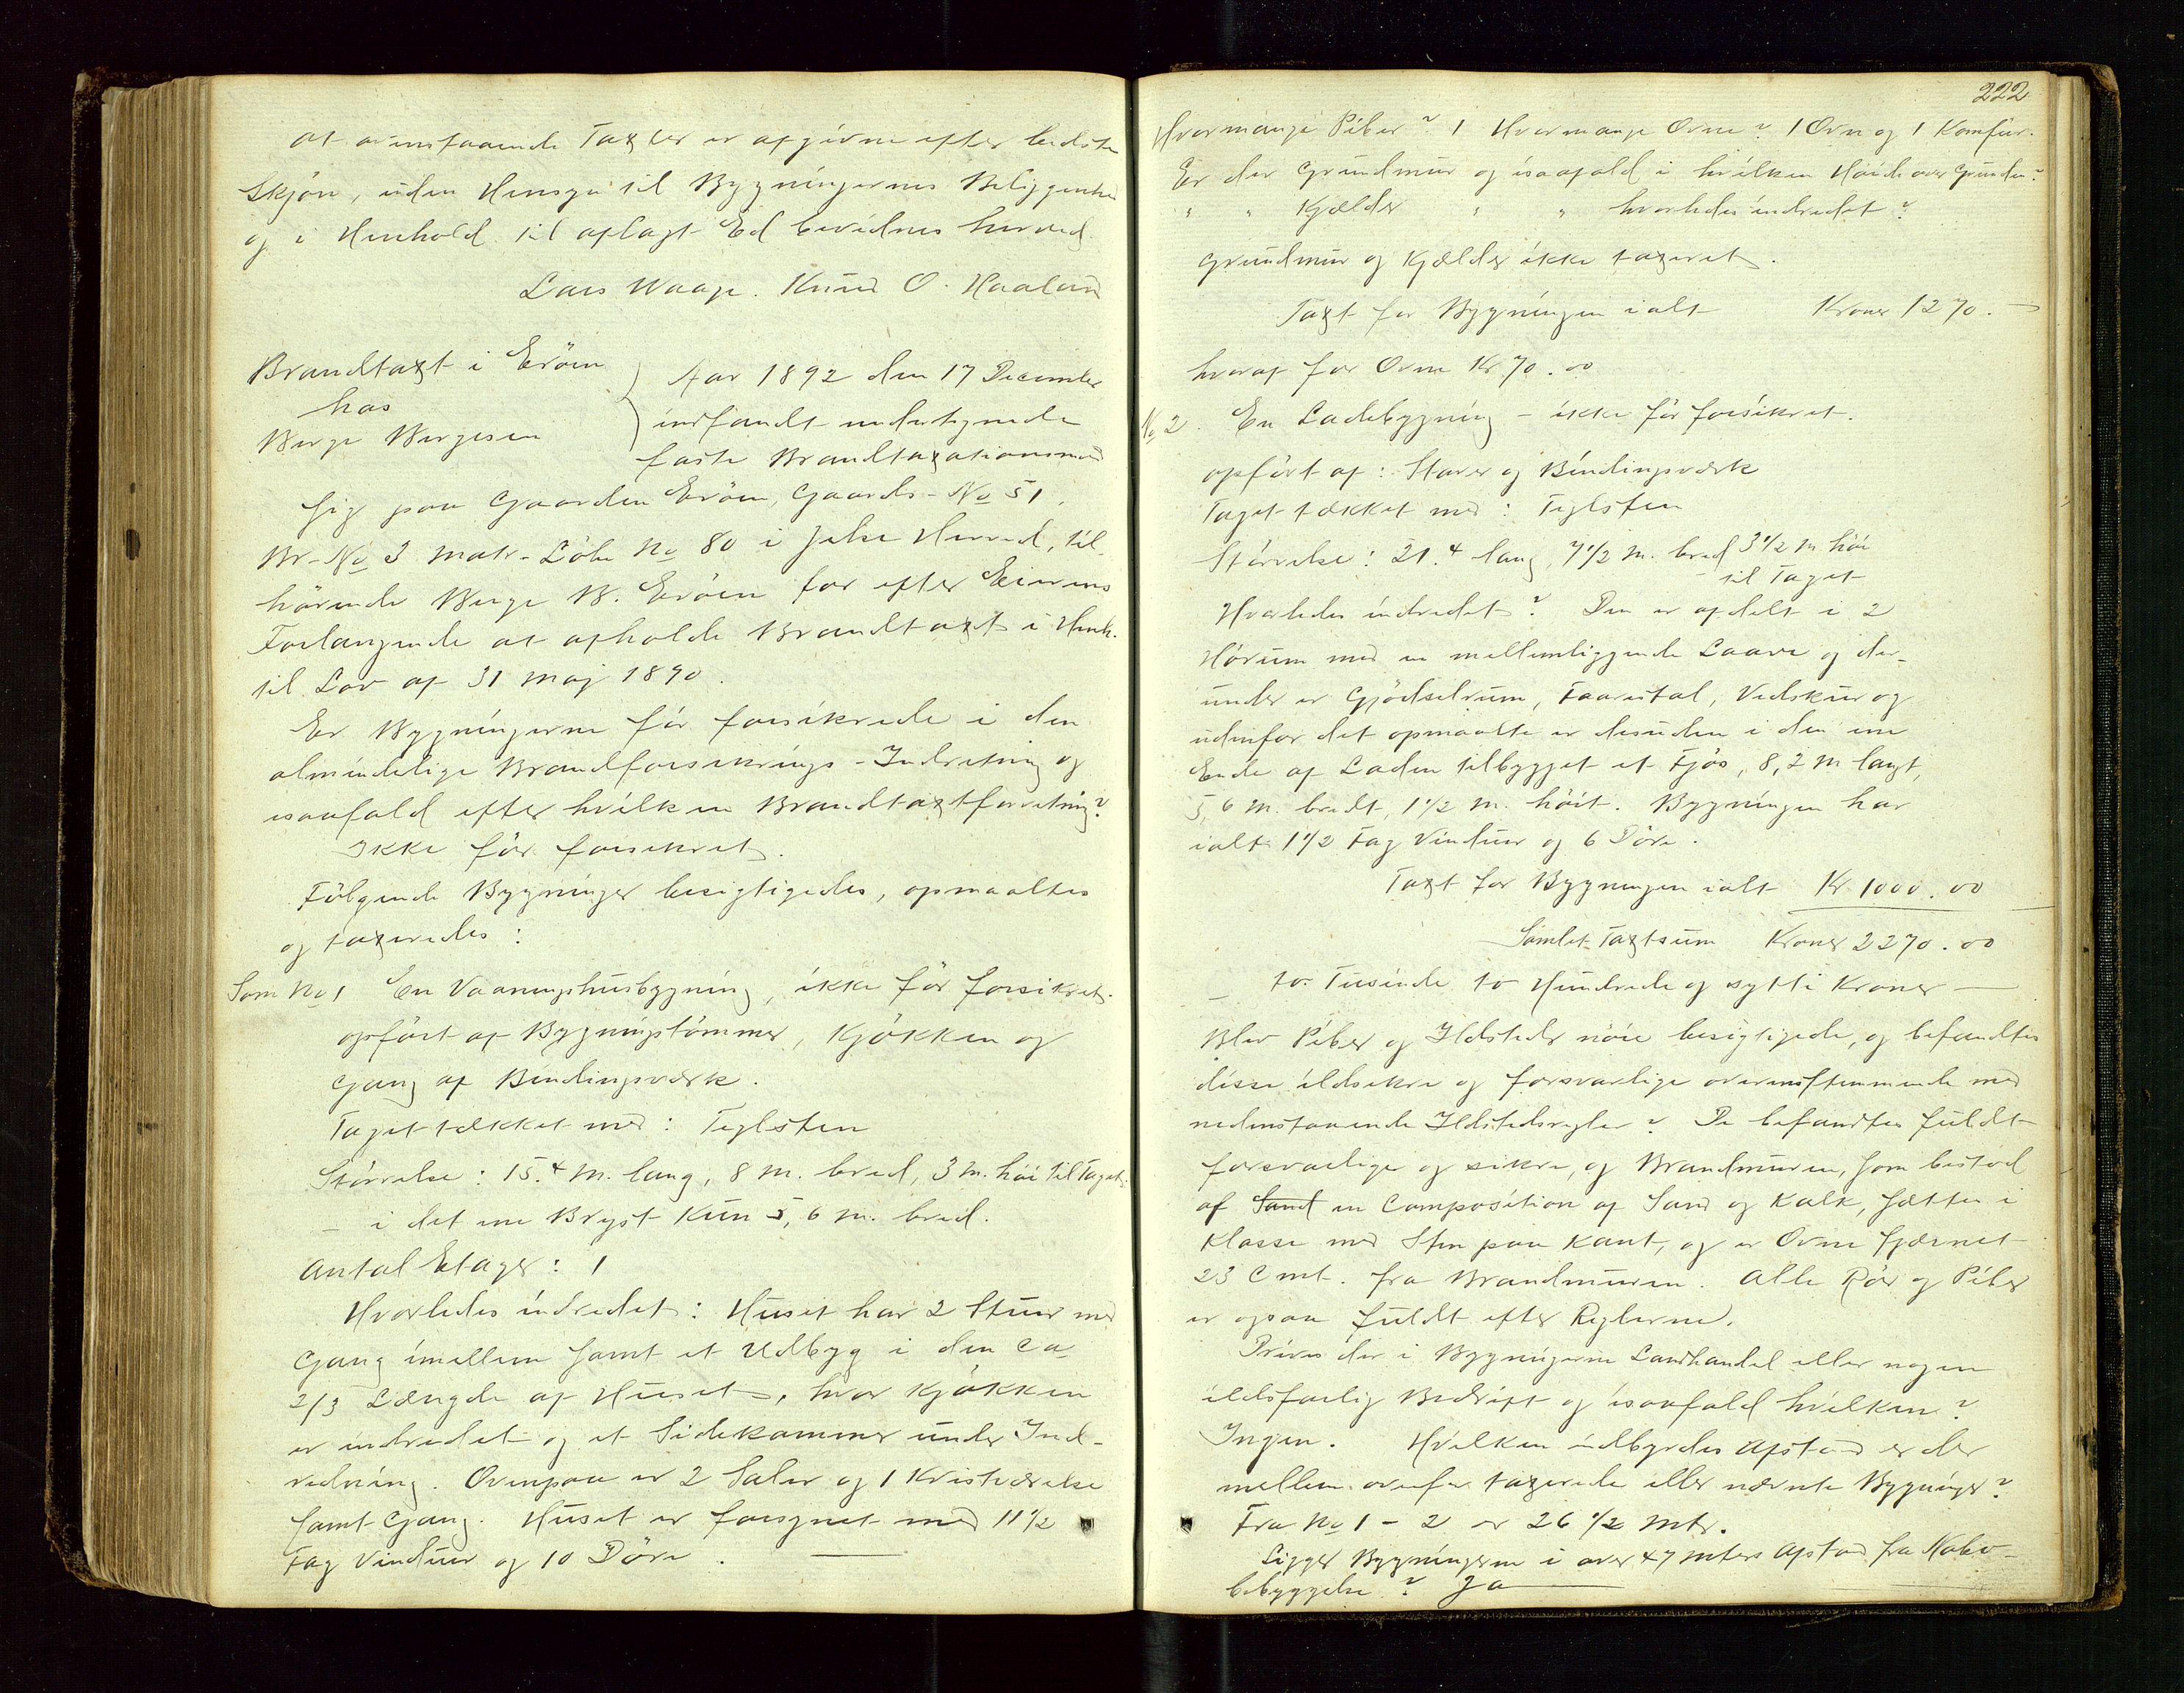 at ovenstaaende Taxter er afgivne efter bedste
Skjøn, uden Hensyn til Bygningernes Beliggenhed
og i Henhold til aflagt Ed bevidnes herved.
Lars Waage. Knud O. Haaland
Brandtaxt i Erøen
hos
Berge Bergesen
Aar 1892 den 17 December
indfandt undertegnede
faste Brandtaxationsmænd
sig paa Gaarden Erøen, Gaards-No 51,
Br-No 3 Matr-Løbe No 80 i Jelse Herred, til-
hørende Berge B. Erøen for efter Eierens
Forlangende at afholde Brandtaxt i Henh.
til Lov af 31 Maj 1890.
Er Bygningerne før forsikrede i den
almindelige Brandforsikrings-Indretning og
isaafald efter hvilken Brandtaxtforretning?
Ikke før forsikret.
Følgende Bygninger besigtigedes, opmaaltes
og taxeredes:
Som No 1 En Vaaningshusbygning, ikke før forsikret.
opført af Bygningstømmer, Kjøkken og
Gang af Bindingsværk.
Taget tækket med: Teglsten
Størrelse: 15.4 M. lang, 8 M. bred, 3 M. høi til Taget.
– i det ene Bryst kun 5,6 M. bred.
Antal Etager: 1
Hvorledes indredet: Huset har 2 Stuer med
Gang imellem samt et Udbyg i den ca
2/3 Længde af Huset, hvor Kjøkken
er indredet og et Sidekammer under Ind-
redning. Ovenpaa er 2 Saler og 1 Kvistværelse
samt Gang. Huset er forsynet med 11 1/2
Fag Vinduer og 10 Døre.
222
Hvormange Piber? 1 Hvormange Ovne? 1 Ovn og 1 Komfur.
Er der Grundmur og isaafald i hvilken Høide over Grunden?
" " Kjælder " " hvorledes indredet?
Grundmur og Kjælder ikke taxeret.
Taxt for Bygningen ialt Kroner 1270. –
hvoraf for Ovne Kr 70.00
No 2. En Ladebygning – ikke før forsikret.
opført af: Staver og Bindingsværk
Taget tækket med: Teglsten
Størrelse: 21.4 lang, 7 1/2 M. bred 3 1/2 M høi
til Taget
Hvorledes indredet? Den er afdelt i 2
Hørum med en mellemliggende Laave og der-
under er Gjødselrum, Faarestal, Vedskur og
udenfor det opmaalte er desuden i den ene
Ende af Laden tilbygget et Fjøs, 8,2 M langt,
5,6 M. bredt, 1 1/2 M. høit. Bygningen har
ialt 1 1/2 Fag Vinduer og 6 Døre.
Taxt for Bygningen ialt Kr 1000.00
Samlet Taxtsum Kroner 2270.00
– to Tusinde to Hundrede og sytti Kroner –
Blev Piber og Ildsteder nøie besigtigede, og befandtes
disse ildsikre og forsvarlige overensstemmende med
nedenstaaende Ildstedsregler? De befandtes fuldt
forsvarlige og sikre, og Brandmuren, som bestod
af Sand en Composition af Sand og Kalk, sættes i
Klasse med Sten paa Kant, og er Ovne fjærnet
23 Cmt. fra Brandmuren. Alle Rør og Piber
er ogsaa fuldt efter Reglerne.
Drives der i Bygningerne Landhandel eller nogen
ildsfarlig Bedrift og isaafald hvilken?
Ingen. Hvilken indbyrdes Afstand er der
mellem ovenfor taxerede eller nævnte Bygninger?
Fra No 1 – 2 er 26 1/2 Mtr.
Ligger Bygningerne i over 47 Mters Afstand fra Nabo-
bebyggelse? Ja